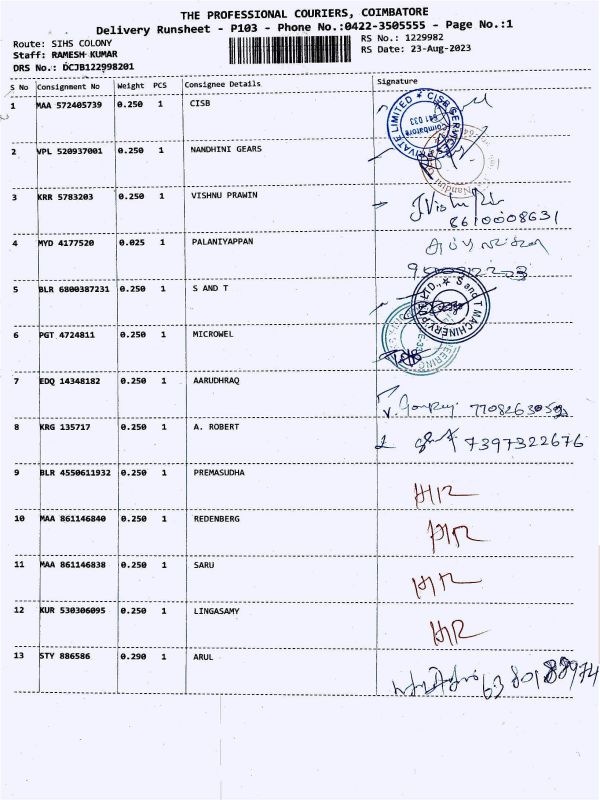 THE PROFESSIONAL COURIERS, COIMBATORE
Delivery Runsheet - P103 - Phone No.:0422-3505555 - Page No.:1
Route: SIHS COLONY
Staff: RAMESH KUMAR
DRS No.: DCJB122998201
RS No.: 1229982
RS Date: 23-Aug-2023
S No Consignment No Weight PCS Consignee Details Signature
1 MAA 572405739 0.250 1 CISB
CISB SERVICES PRIVATE LIMITED Coimbatore 641 033
2 VPL 520937001 0.250 1 NANDHINI GEARS
Nandhini
3 KRR 5783203 0.250 1 VISHNU PRAWIN
8610008631
4 MYD 4177520 0.025 1 PALANIYAPPAN
5 BLR 6800387231 0.250 1 S AND T
S and T MACHINERY
6 PGT 4724811 0.250 1 MICROWEL
7 EDQ 14348182 0.250 1 AARUDHRAQ
8 KRG 135717 0.250 1 A. ROBERT
7397322676
9 BLR 4550611932 0.250 1 PREMASUDHA
10 MAA 861146840 0.250 1 REDENBERG
11 MAA 861146838 0.250 1 SARU
12 KUR 530306095 0.250 1 LINGASAMY
13 STY 886586 0.290 1 ARUL